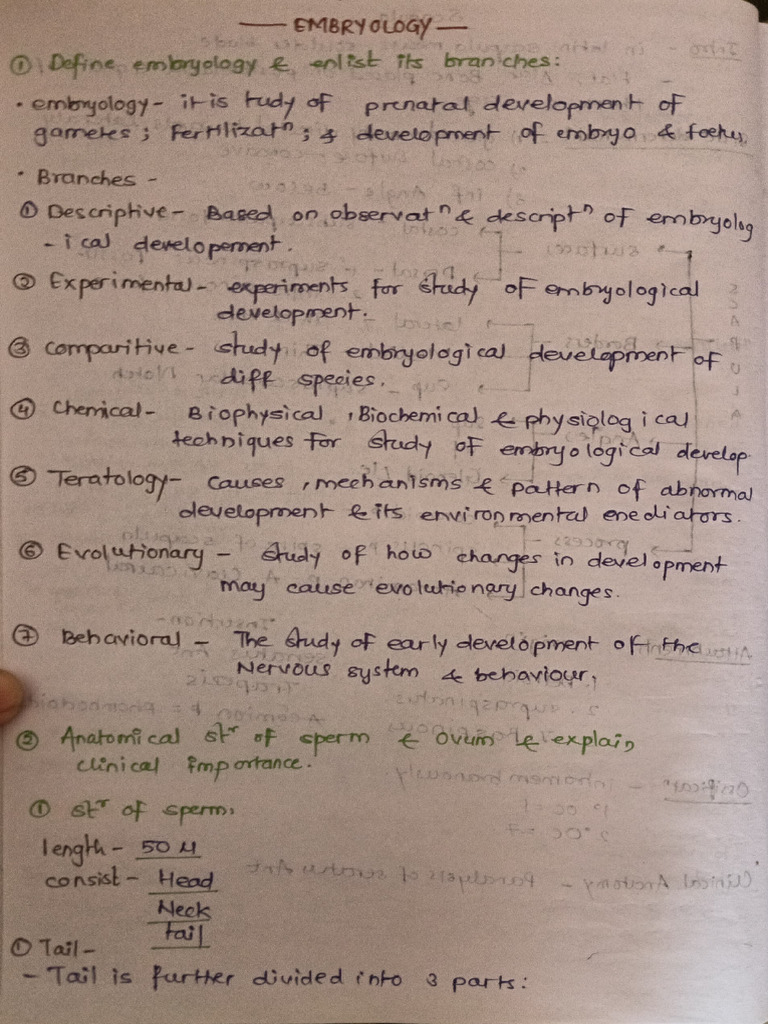 — EMBRYOLOGY —
① Define embryology & enlist its branches:
• embryology - it is tudy of prenatal development of
gametes; Fertilizatⁿ; & development of embryo & foetus,
• Branches -
① Descriptive - Based on observatⁿ & descriptⁿ of embryolog
- ical developement.
② Experimental - experiments for study of embryological
development.
③ comparitive - study of embryological development of
diff species.
④ Chemical - Biophysical, Biochemical & physiological
techniques for study of embryological develop
⑤ Teratology - causes, mechanisms & pattern of abnormal
development & its environmental enediators.
⑥ Evolutionary - study of how changes in development
may cause evolutionary changes.
⑦ Behavioral - The study of early development of the
Nervous system & behaviour,
② Anatomical stʳ of sperm & ovum & explain
clinical importance.
① stʳ of sperm,
length - 50 µ
consist - Head
Neck
tail
① Tail -
- Tail is further divided into 3 parts: